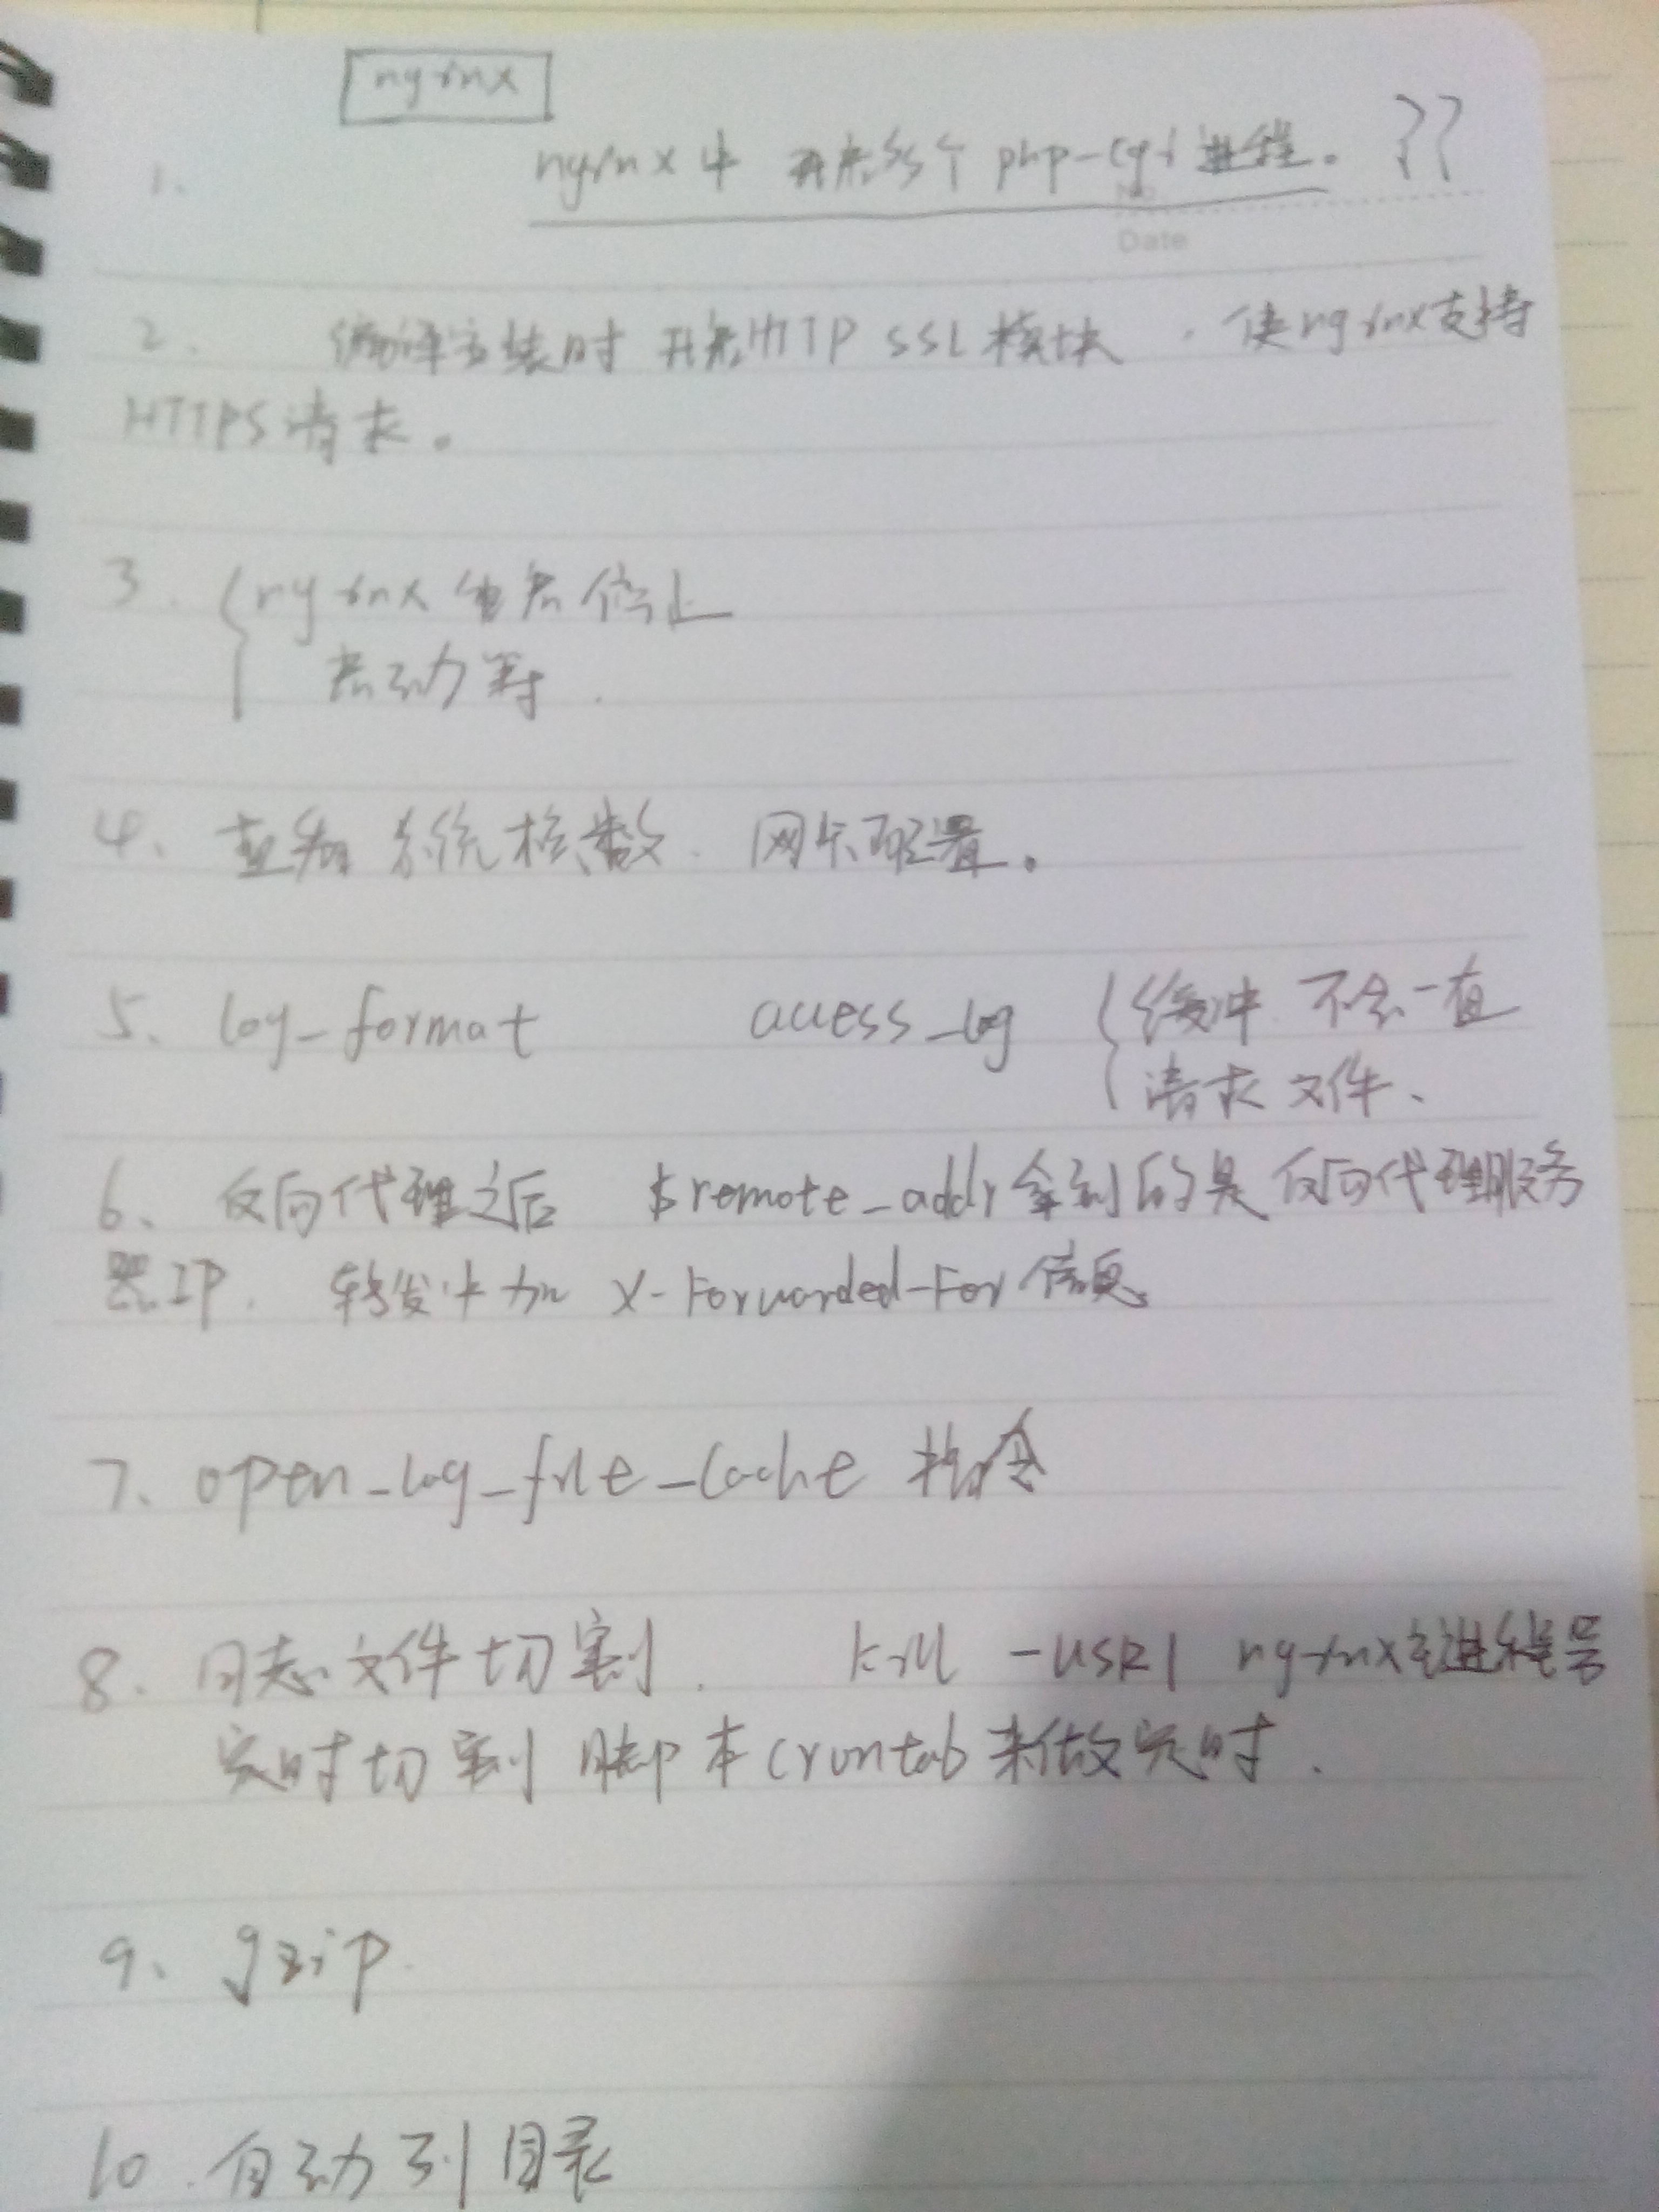 nginx
1. nginx中 开启多个 php-cgi 进程。??
No
Date
2. 编译安装时 开启HTTP SSL模块 . 使nginx支持
HTTPS请求。
3. nginx 停止
启动等.
4. 查看 系统核数. 网卡配置。
5、log_format access_log 缓冲. 不会一直
请求文件、
6、反向代理之后 $remote_addr拿到的是反向代理服务
器IP. 转发中加 X-Forwarded-For信息
7、open_log_file_cache 指令
8. 日志文件切割. kill -USR1 nginx主进程号
定时切割 脚本crontab来做定时.
9、gzip.
10.自动列目录